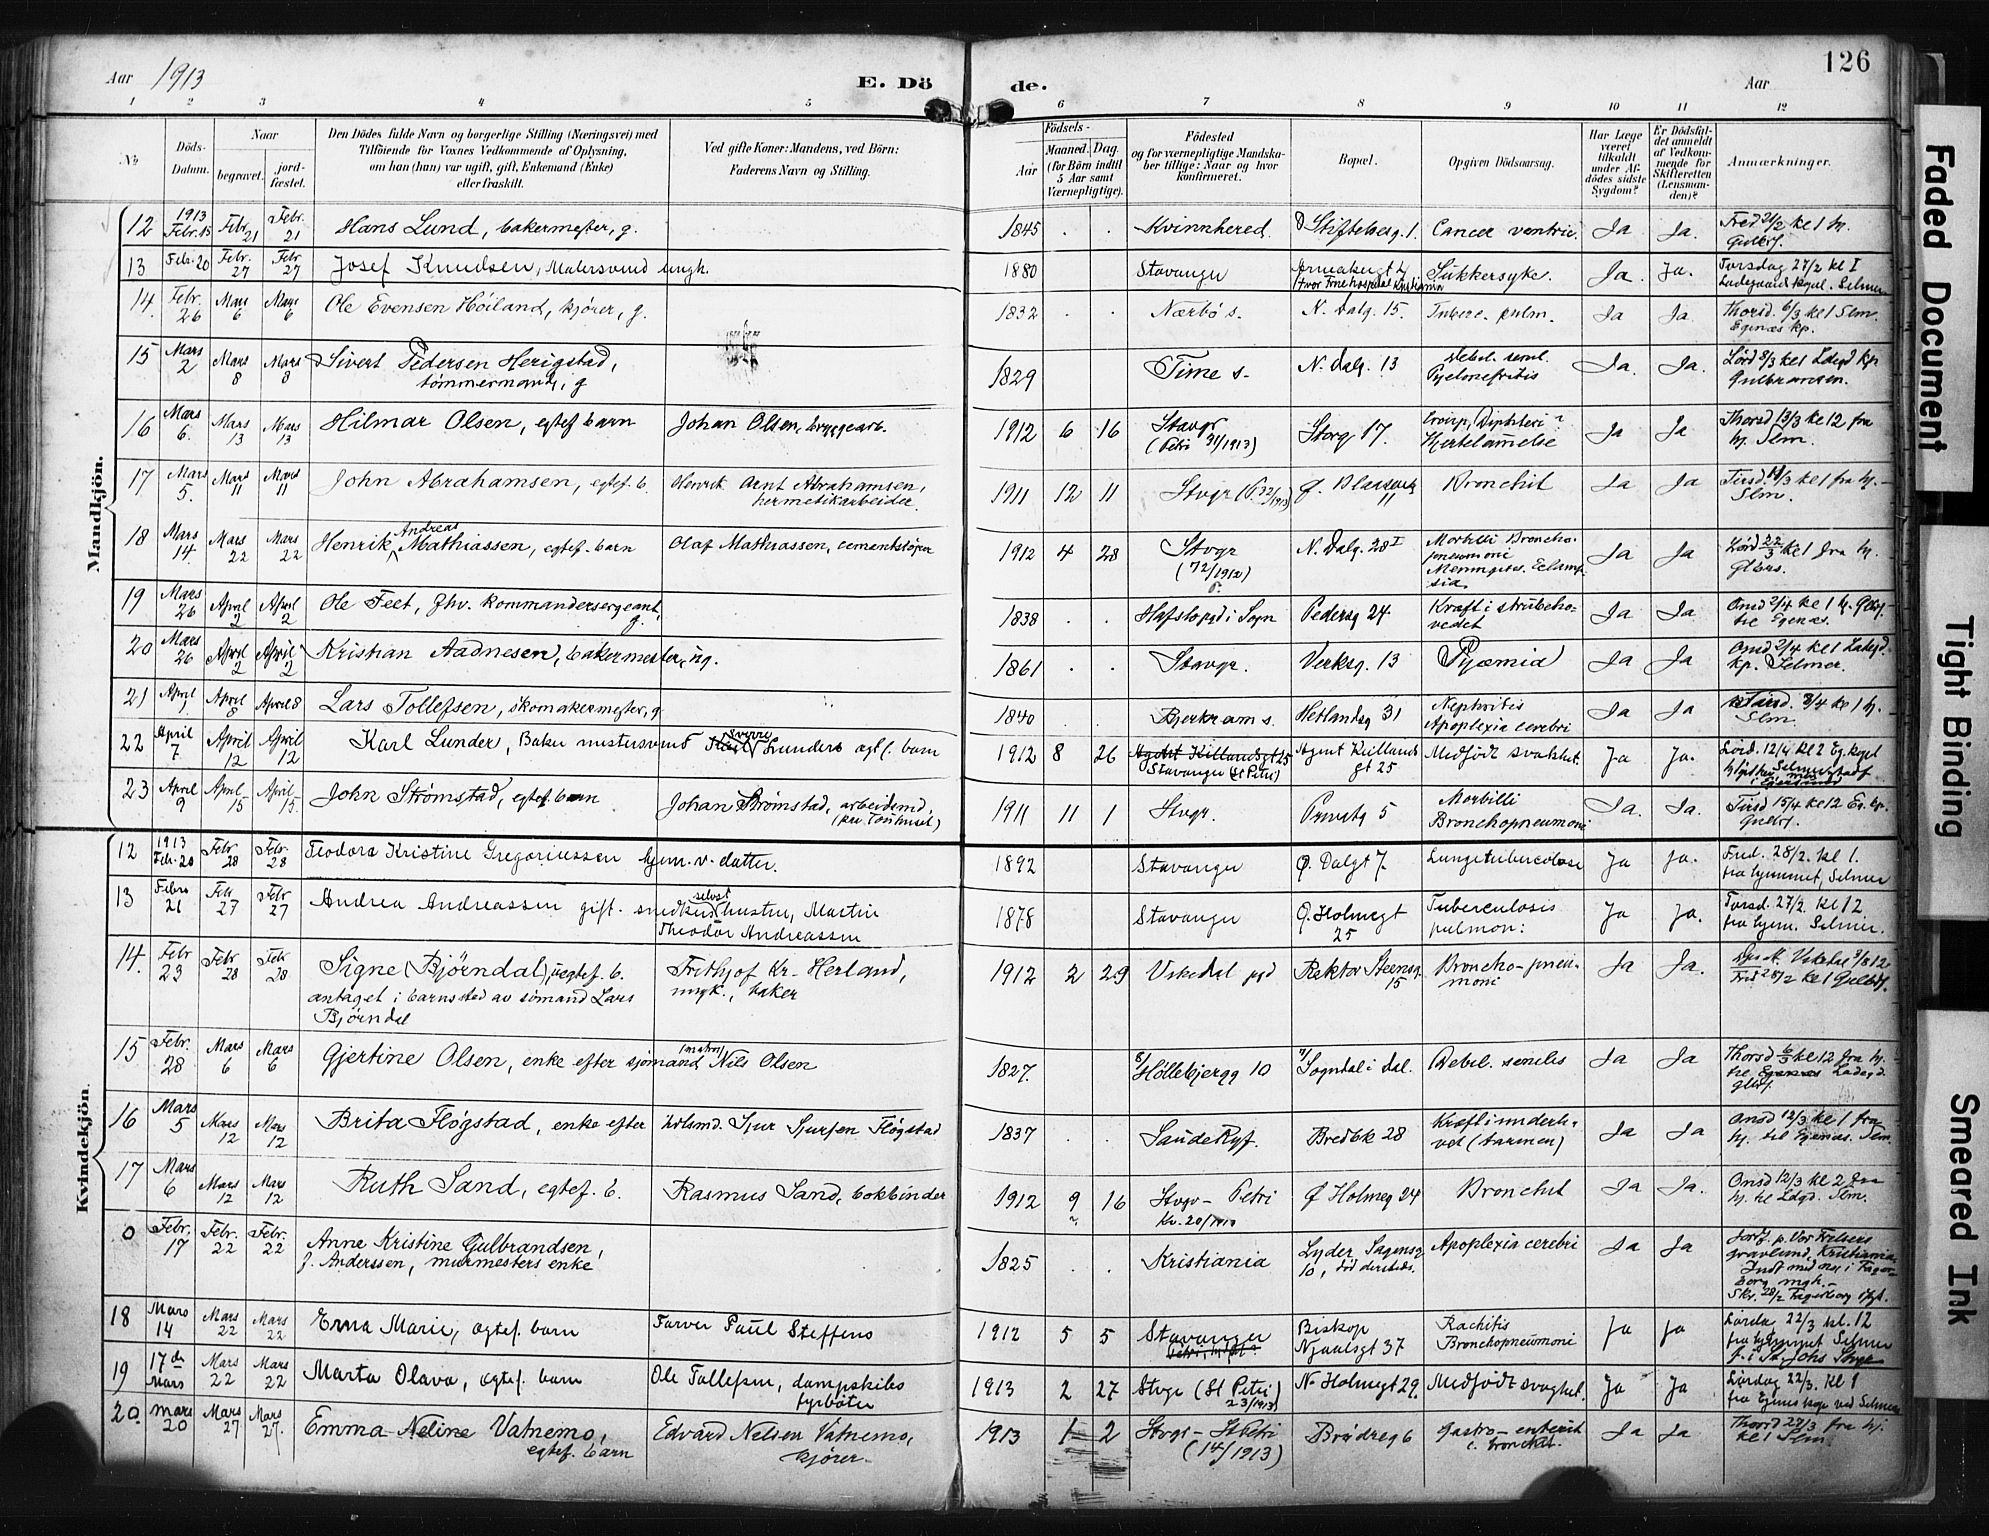 Aar 1913
E. Dö
de.
Aar
126
1 2 3 4 5 6 7 8 9 10 11 12
No
Döds-Datum.
Naar
begravet.
jordfæstet.
Den Dödes fulde Navn og borgerlige Stilling (Næringsvei) med
Tilföiende for Voxnes Vedkommende af Oplysning,
om han (hun) var ugift, gift, Enkemand (Enke)
eller fraskilt.
Ved gifte Koner: Mandens, ved Börn:
Faderens Navn og Stilling.
Födsels-
Aar
Maaned. Dag.
(for Börn indtil
5 Aar samt
Værnepligtige).
Födested
og for værnepligtige Mandska-
ber tillige: Naar og hvor
konfirmeret.
Bopæl.
Opgiven Dödsaarsag.
Har Læge
været
tilkaldt
under Af-
dödes sidste
Sygdom?
Er Dödsfal-
det anmeldt
af Vedkom-
mende for
Skifteretten
(Lensman-
den)?
Anmærkninger.
Mandkjön.
12 1913 Febr. 15 Febr 21 Febr. 21 Hans Lund, bakermester, g. 1845 . . Kvinnhered Cancer ventric. Ja Ja. Fred 21/2 kl 1 hj. Gulbr.
13 Febr. 20 Febr. 27 Febr 27 Josef Knudsen, Malersvend ungh. 1880 Stavanger Sukkersyke. Ja. Ja. Torsdag 27/2 kl 1
Ladegaard kapel. Selmer
14. Febr. 26 Mars 6 Mars 6 Ole Evensen Höiland, kjører, g. 1832 . . Nærbö s. N. Dalg. 15. Tuberc. pulm. Ja Ja. Thorsd. 6/3 kl 1 Slm.
Egenæs kp.
15 Mars 2 Mars 8 Mars 8 Sivert Pedersen Herigstad,
tömmermand, g 1829 Time s. N. Dalg. 13 Debil. senil.
Pyelonefritis Ja. Ja. Lörd 8/3 kl 1 Ladegd kp
Gulbransen.
16 Mars 6. Mars 13 Mars 13 Hilmar Olsen, egtef. barn Johan Olsen, bryggearb. 1912 6 16 Stavgr
(Petri 31/1913) Storg 17. Croup, Diphteri?
Hjertelamelse Ja Ja Thorsd 13/3 kl 12 fra
hj. Slm.
17 Mars 5. Mars 11 Mars 11 John Abrahamsen, egtef. b. Henrik Arnt Abrahamsen,
hermetikarbeider. 1911 12 11 Stvgr Bronchit Ja Ja Tirsd 11/3 kl 1 fra hj.
Slm.
18 Mars 14. Mars 22 Mars 22 Henrik Andreas Mathiassen, egtef. barn Olaf Mathiassen, cementstöper 1912 4 28 Stvgr
(72/1912) P. N. Dalg. 28 I Morbilli Broncho-
pneumoni
Meningitis. Eclamp-
sia Ja Ja Lörd 22/3 kl 1 fra hj.
Glbrs.
19 Mars 26 April 2 April 2 Ole Feet, fhv. kommandersergeant,
g. 1838 . . Hafslopgd i Sogn Pedersg 24 Kræft i strubeho-
vedet Ja Ja Onsd 2/4 kl 1 hj. Glbr.
til Egenæs.
20 Mars 26 April 2 April 2 Kristian Aadnesen, bakermester, ug. 1861 . . Stavgr. Verksg. 13 Pyæmia Ja Ja Onsd 2/4 kl 1 Ladegd.
kp. Selmer.
21 April 1 April 8 April 8 Lars Tollefsen, skomakermester, g 1840 . . Bjerkram s. Hetlandsg 31 Nephritis
Apoplexia cerebri Ja Ja 8/4 kl 1 hj.
Slm.
22 April 7 April 12 April 12 Karl Lunder, Baker mestersvend Sverre Lunder egtf. barn 1912 8 26 Agent Kiellandsgt 25
Stavanger (St Petri) Agent Kiellands
gt 25 Medfödt svakhet. Ja Ja. Lörd. 12/4 kl 2 Eg. kapel
23 April 9 April 15 April 15 John Strömstad, egtef. barn Johan Strömstad, arbeidsmd. 1911 11 1 Stvgr. Privatg 5 Morbilli
Bronchopneumoni Ja. Ja. Tirsd 15/4 kl 12 Eg. kp.
Gulbr.
Kvindekjön
12 1913 Feb. 20 Febr 28 Febr. 28 Teodora Kristine Gregoriussen hjem. v. datter. 1892 Stavanger Ø. Dalgt 7. Lungetuberculose Ja Ja. Fred. 28/2. kl 1.
fra hjemmet, Selmer
13 Febru 21 Feb 27 Febr 27 Andrea Andreassen gift. snedker selvst hustru, Martin
Theodor Andreassen 1878 Stavanger Ø. Holmegt
25 Tuberculosis
pulmon: Ja Ja. Torsd. 27/2. kl 12
fra hjem. Selmer.
14. Febr 23 Febr 28 Febr 28 Signe (Bjørndal), uegtef. b.
antaget i barns sted av sömand Lars
Bjørndal Frithjof Kr. Herland,
ungk., baker 1912 2 29 Vikedal pgd Rektor Steensg.
15 Broncho-pneu-
moni Ja Ja. Fred 28/2 kl 1 Gulbr.
15 Febr. 28 Mars 6 Mars 6 Gjertine Olsen, enke efter sjömand (matros) Nils Olsen 1827. Høllebjergg 10 Sogndal i Dal. Debil. senilis Ja Ja Thorsd 6/3 kl 12 fra hj.
til Egenæs Ladegd.
Glbr.
16 Mars 5 Mars 12 Mars 12 Brita Flógstad, enke efter Sjur Sjursen Flógstad 1837 . . Saude Ryf. Bredbk 28 Kræft i underli-
vet (tarmen) Ja Ja Onsd 12/3 kl 1 fra
hj. til Egenæs. Slm.
17 Mars 6 Mars 12 Mars 12 Ruth Sand, egtef. b. Rasmus Sand, bokbinder 1912 9 16 Stvgr - Petri
Kv. 20/1913 Ø Holmeg 24 Bronchit Ja Ja. Onsd 12/3 kl 2 fra
hj. til Ldgd. Slm.
0 Febr. 17 Febr. 22 Febr. 22 Anne Kristine Gulbrandsen,
f. Anderssen, murmesters enke 1825 . . Kristiania Lyder Sagensg
10, död dersteds. Apoplexia cerebri Ja Ja Jordf. p. Vor Frelsers
gravlund, Kristiania.
Indt med no, i Fager-
borg mgh.
Skr. 28/2 Fagerborg spgt.
18 Mars 14 Mars 22 Mars 22 Erna Marie, egtef. barn Farver Paul Steffens 1912 5 5 Stavanger Biskop
Njaalsgt 37 Rachitis
Bronchopneumoni Ja Ja Lördag 22/3 kl. 12
fra hjemmet Selmer
19 17de Mars Mars 22 Mars 22 Marta Olava, egtef. barn Ole Tollefsen, dampskibs
fyrböter 1913 2 27 Stvgr (St Petri)
23/1913) N. Holmegt 29. Medfödt svaghet. Ja Ja Lördag 22/3. kl 1
fra Egenes kape ved Selmer
20. Mars 20 Mars 27 Mars 27. Emma Neline Vatnemo,
egtef. barn Edvard Nelsen Vatnemo,
kjører. 1913 1 2 Stvgr - St Petri
(14/1913) Brödreg 6 Gastro-enterit
c. bronchit. Ja Ja Thorsd 27/3 fra hj.
kl 1 Slm
Faded Document
Tight Binding
Smeared Ink